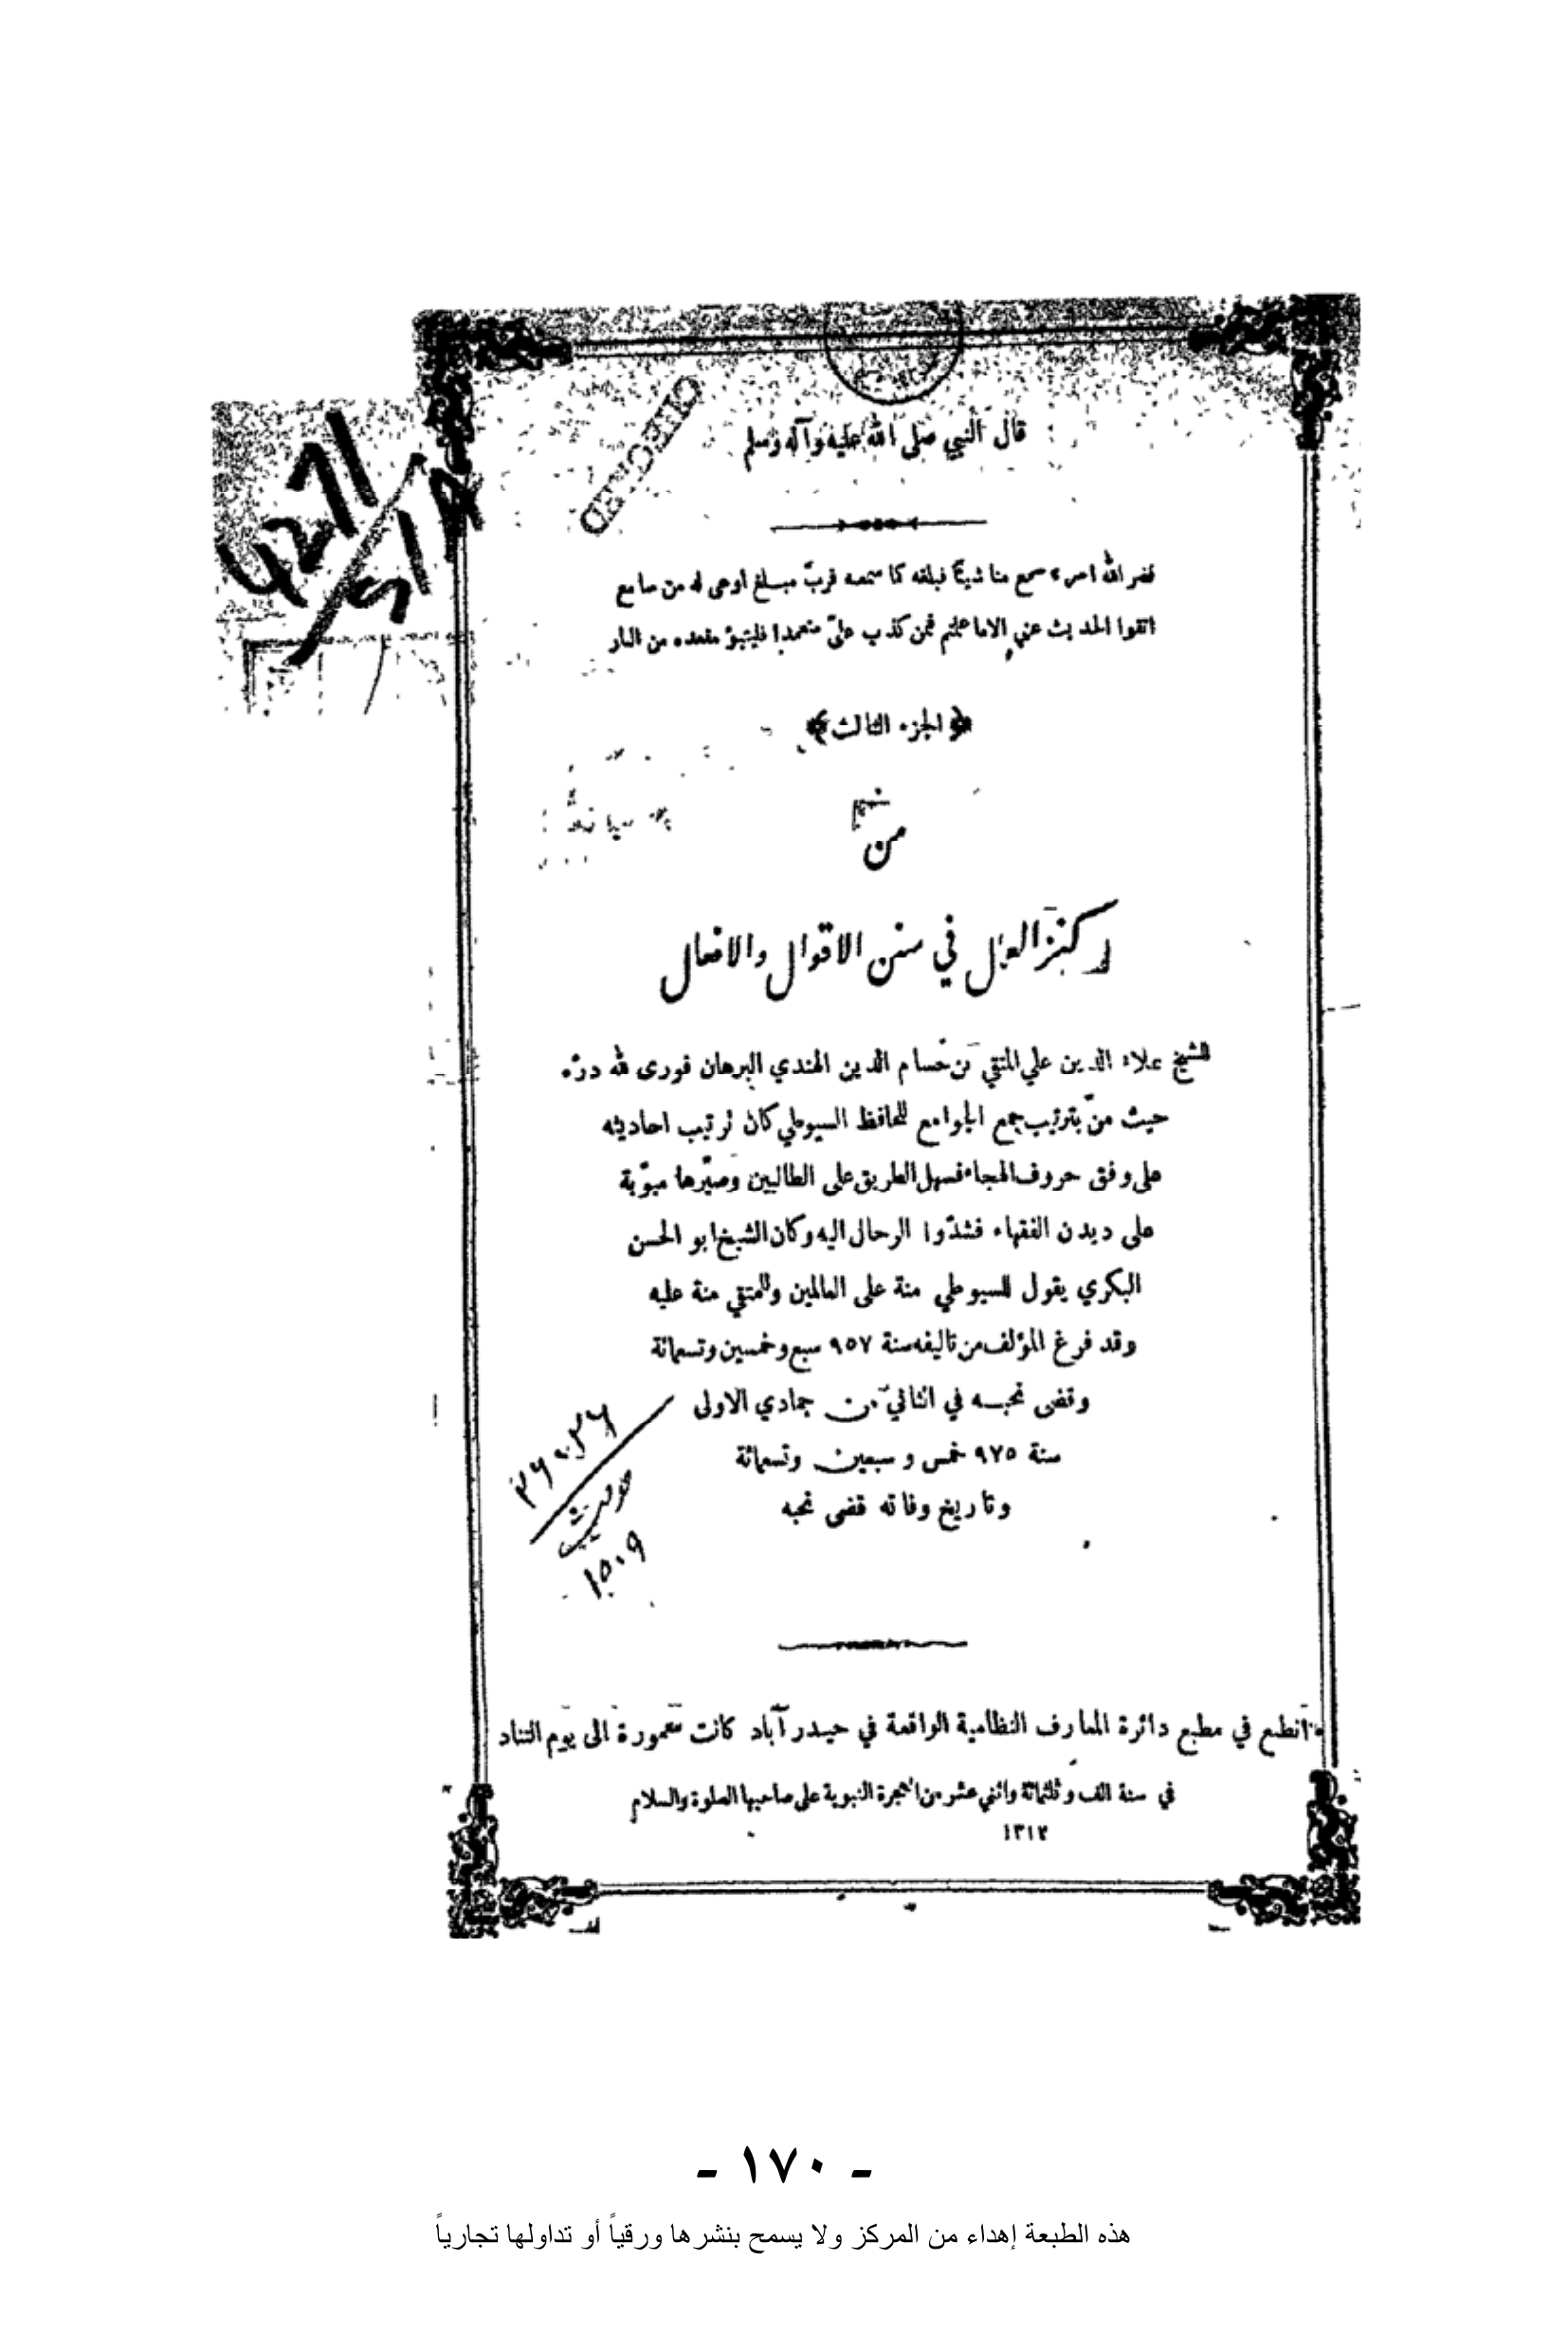 قال النبي صلى الله عليه وآله وسلم
CHECKED
نضر الله امرء سمع منا شيئًا فبلغه كما سمعه فربّ مبلغ اوعى له من سامع
اتقوا الحديث عني الاما علمتم فمن كذب عليّ متعمدا فليتبؤ مقعده من النار
﴿الجزء الثالث﴾
من
كنز العمال في سنن الاقوال والافعال
للشيخ علاء الدين علي المتقي بن حسام الدين الهندي البرهان فورى لله درّه
حيث منّ بترتيب جمع الجوامع للحافظ السيوطي كان ترتيب احاديثه
على وفق حروف الهجاء فسهل الطريق على الطالبين وصيّرها مبوّبة
على ديدن الفقهاء فشدّوا الرحال اليه وكان الشيخ ابو الحسن
البكري يقول للسيوطي منة على العالمين وللمتقي منة عليه
وقد فرغ المؤلف من تاليفه سنة ٩٥٧ سبع وخمسين وتسعمائة
وقضى نحبه في الثاني من جمادي الاولى
سنة ٩٧٥ خمس و سبعين وتسعمائة
وتاريخ وفاته قضى نحبه
حديث
١٥٠٩
انطبع في مطبع دائرة المعارف النظامية الواقعة في حيدر آباد كانت معمورة الى يوم التناد
في سنة الف وثلثمائة واثني عشر من الهجرة النبوية على صاحبها الصلوة والسلام
١٣١٢
- ١٧٠ -
هذه الطبعة إهداء من المركز ولا يسمح بنشرها ورقياً أو تداولها تجارياً